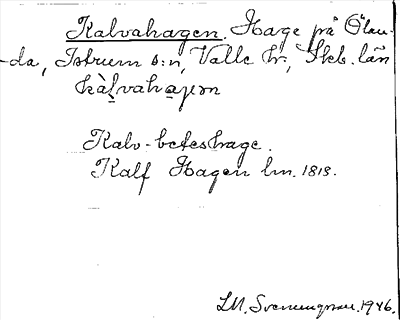 Kalvahagen. Hage på Ölan-
-da, Istrum s:n, Valle hd, Skb. län
kàlvahaɡen
Kalv-beteshage.
Kalf Hagen lm. 1818.
LM. Svenungsson. 1946.